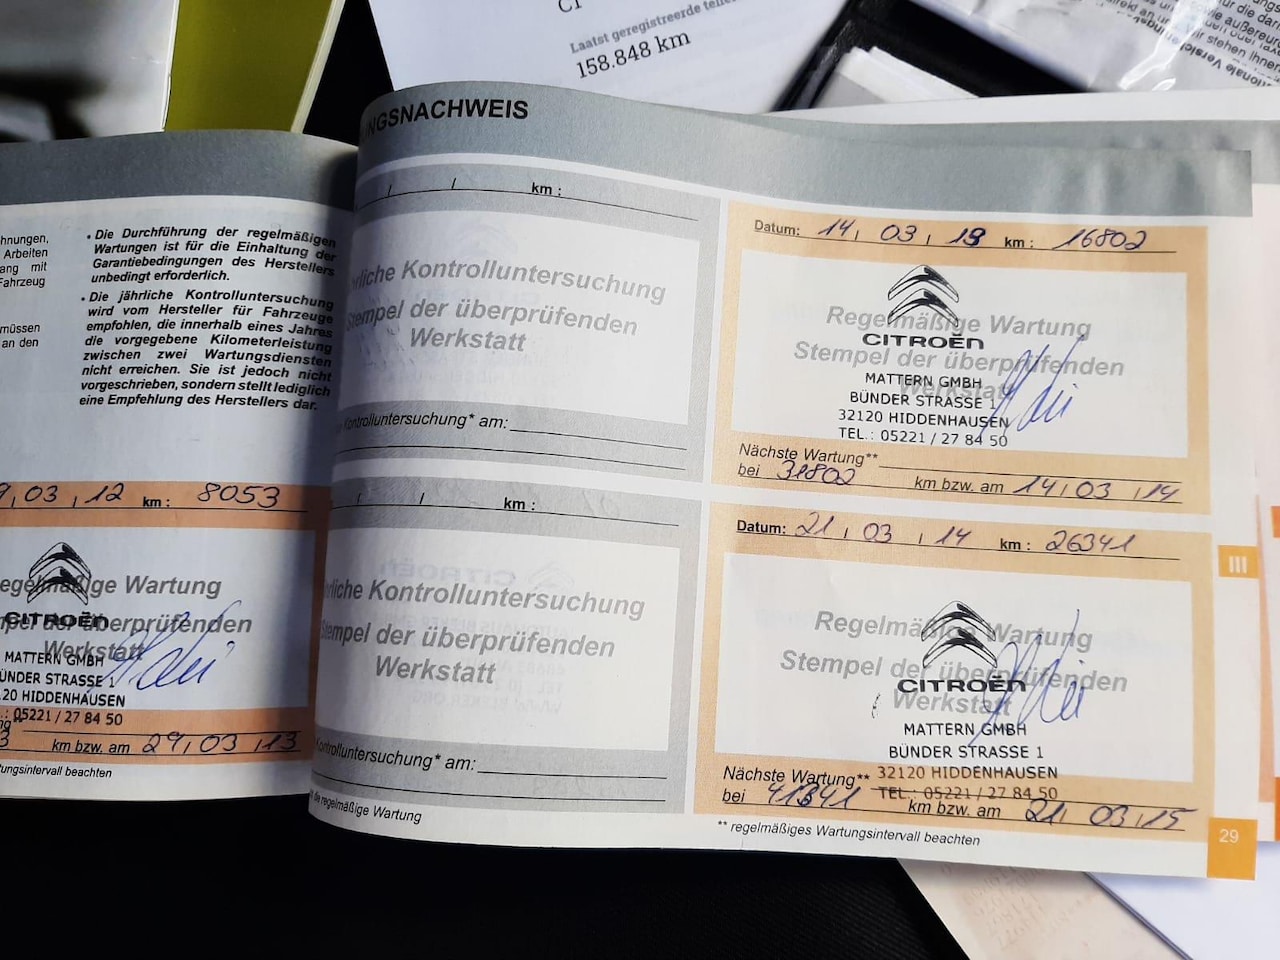 C1
Laatst geregistreerde
158.848 km
NGSNACHWEIS
hnungen,
Arbeiten
ang mit
Fahrzeug
müssen
an den
• Die Durchführung der regelmäßigen
Wartungen ist für die Einhaltung der
Garantiebedingungen des Herstellers
unbedingt erforderlich.
• Die jährliche Kontrolluntersuchung
wird vom Hersteller für Fahrzeuge
empfohlen, die innerhalb eines Jahres
die vorgegebene Kilometerleistung
zwischen zwei Wartungsdiensten
nicht erreichen. Sie ist jedoch nicht
vorgeschrieben, sondern stellt lediglich
eine Empfehlung des Herstellers dar.
9, 03, 12 km: 8053
egelmäßige Wartung
CITROËN
mpel der überprüfenden
Werkstatt
MATTERN GMBH
ÜNDER STRASSE
20 HIDDENHAUSEN
.: 05221 / 27 84 50
ng**
3 km bzw. am 29, 03, 13
tungsintervall beachten
/ / km :
rliche Kontrolluntersuchung
Stempel der überprüfenden
Werkstatt
Kontrolluntersuchung* am:
/ / km :
rliche Kontrolluntersuchung
Stempel der überprüfenden
Werkstatt
Kontrolluntersuchung* am:
die regelmäßige Wartung
Datum: 14, 03, 13 km : 16802
Regelmäßige Wartung
CITROËN
Stempel der überprüfenden
Werkstatt
MATTERN GMBH
BÜNDER STRASSE 1
32120 HIDDENHAUSEN
TEL.: 05221 / 27 84 50
Nächste Wartung**
bei 31802 km bzw. am 14, 03, 14
Datum: 21, 03, 14 km : 26341
Regelmäßige Wartung
Stempel der überprüfenden
CITROËN
Werkstatt
MATTERN GMBH
BÜNDER STRASSE 1
32120 HIDDENHAUSEN
TEL.: 05221 / 27 84 50
Nächste Wartung**
bei 41341 km bzw. am 21, 03, 15
** regelmäßiges Wartungsintervall beachten
III
29